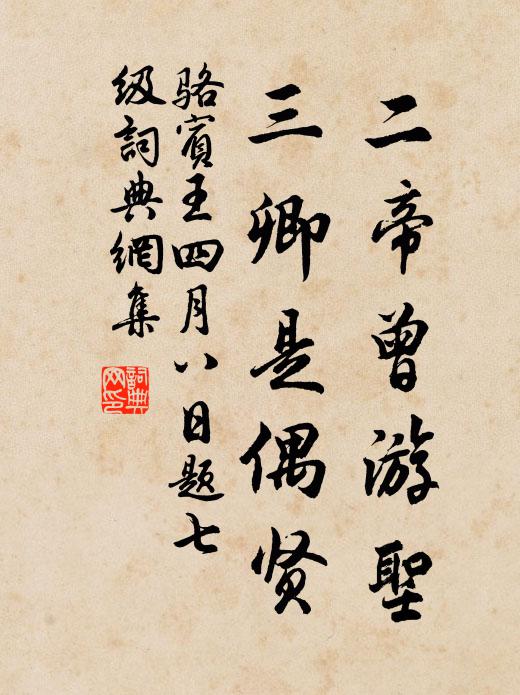 二帝曾游聖
三卿是偶贤
骆賓王四月八日题七
级詞典網集
詞典
网印